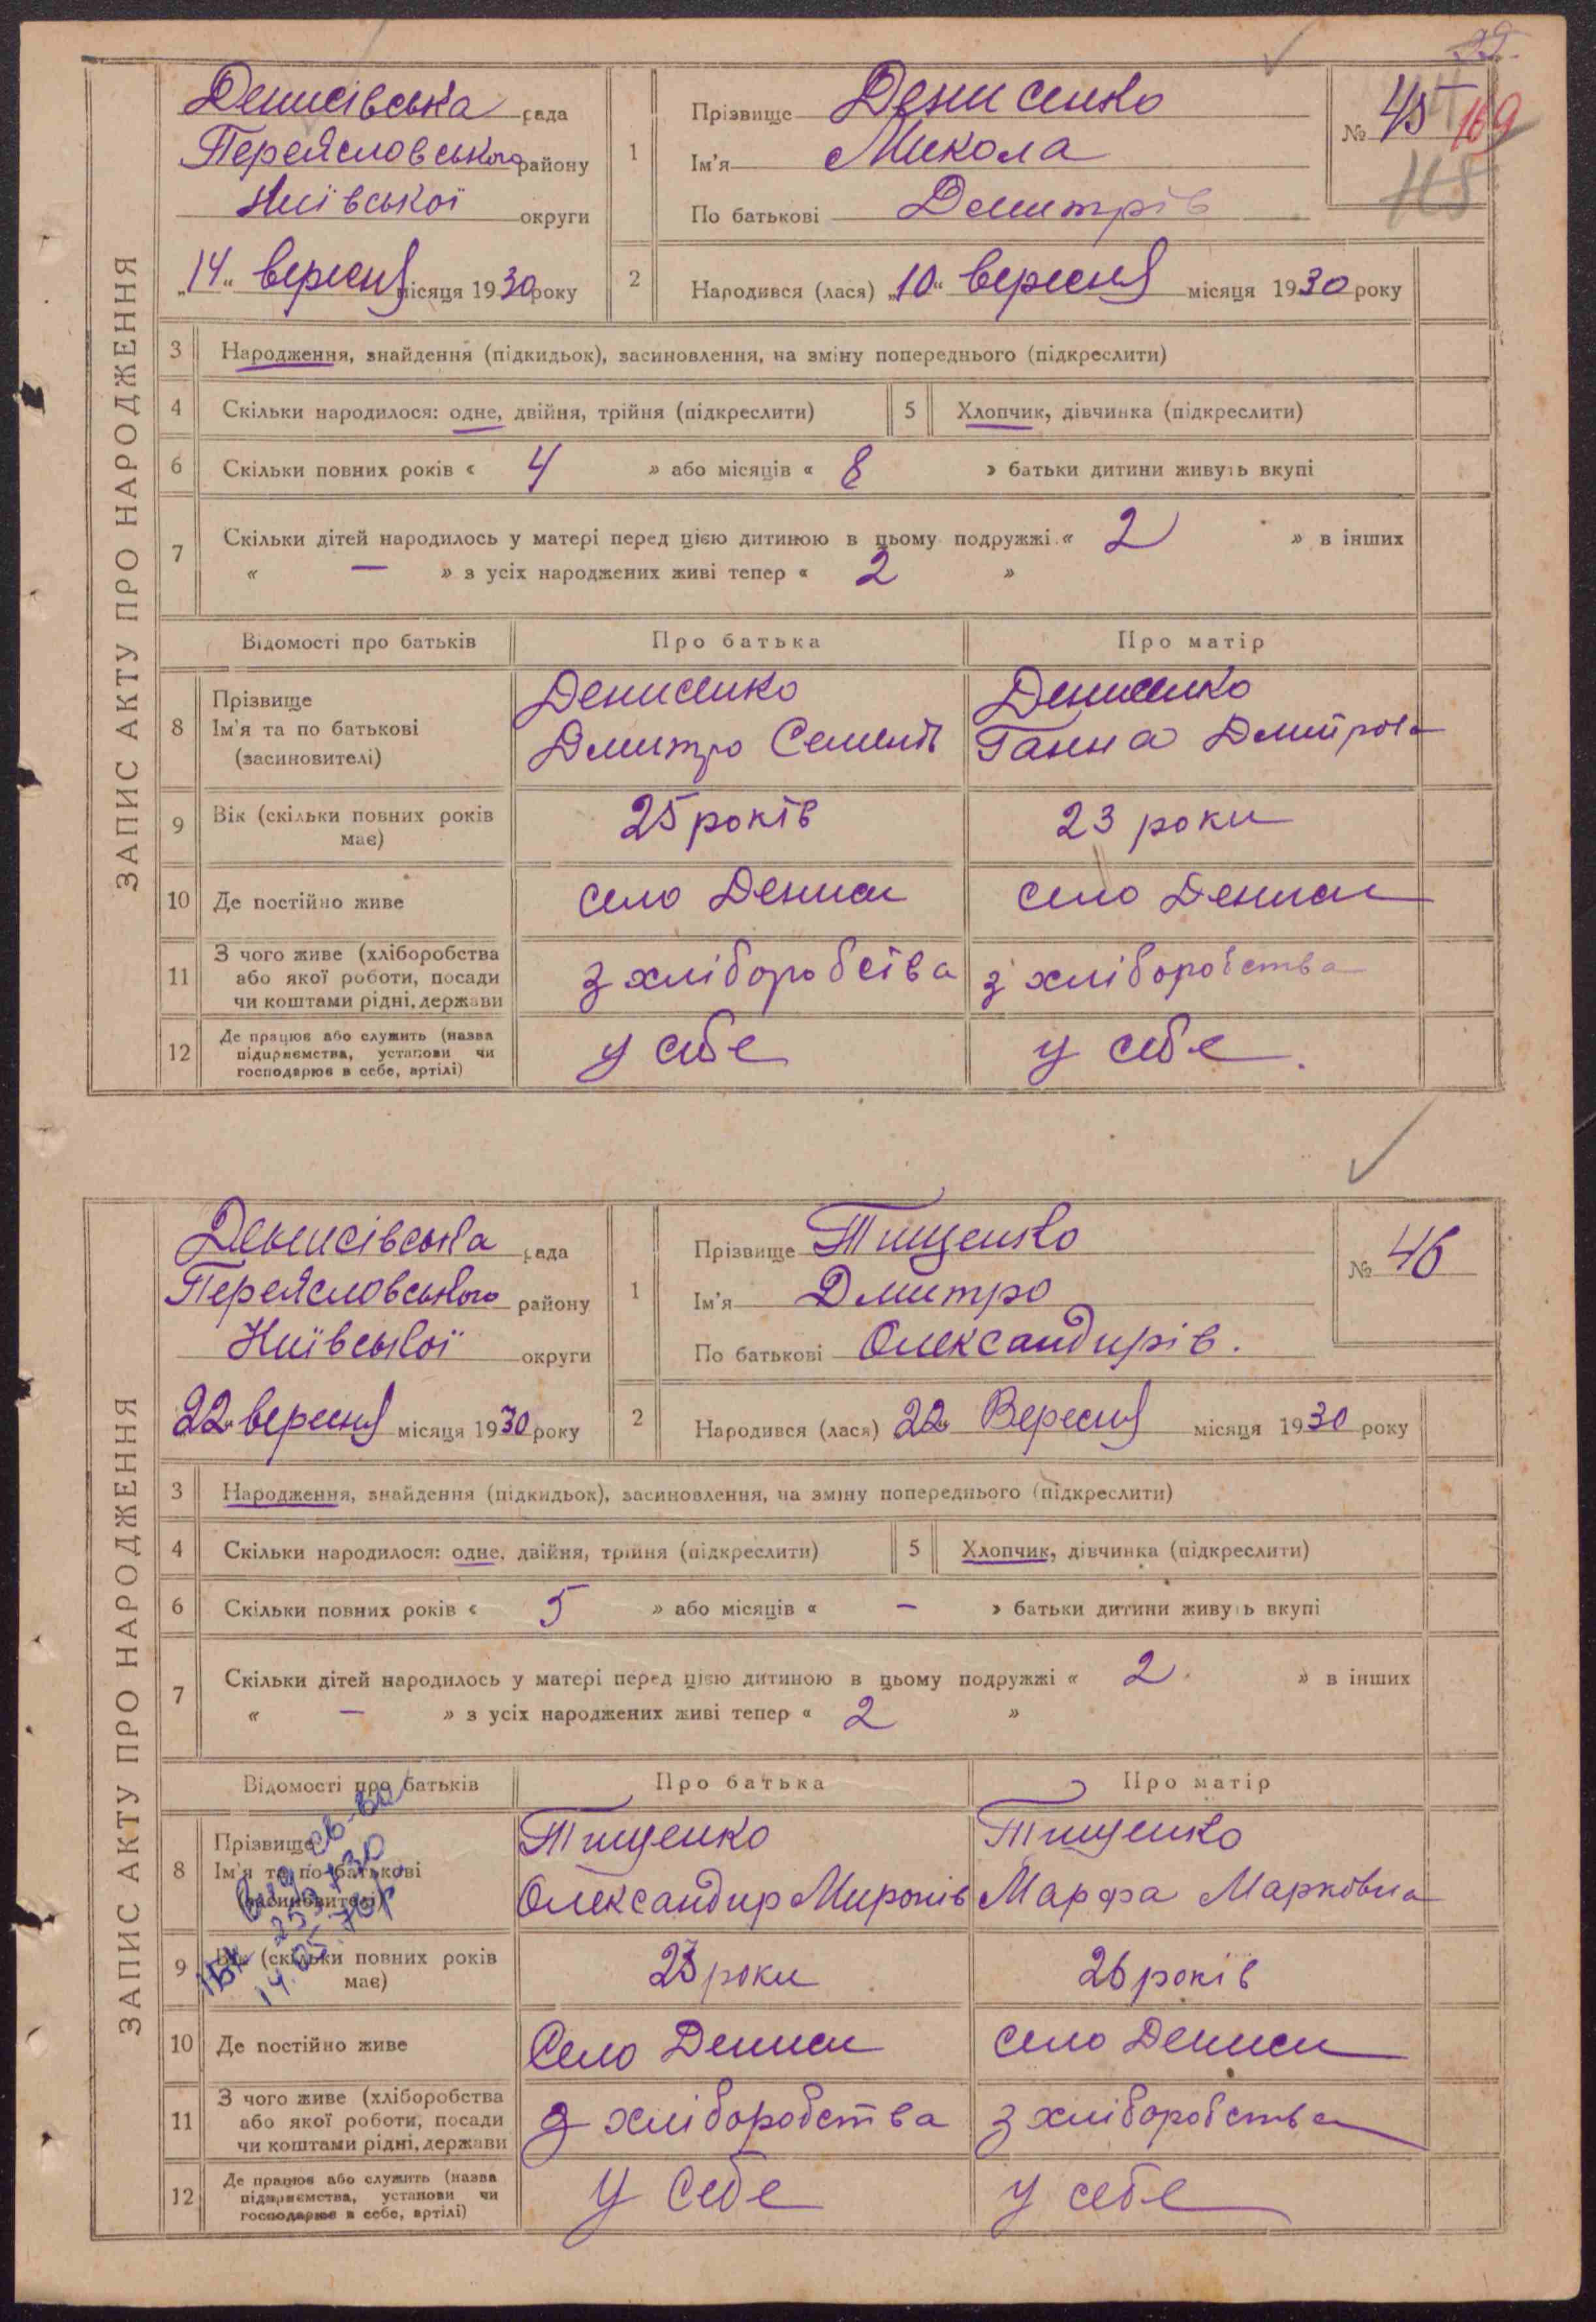 ЗАПИС АКТУ ПРО НАРОДЖЕННЯ
Денисівська рада
Переясловського району
Київської округи
„14“ вересня місяця 1930 року
1
Прізвище Денисенко
Ім'я Микола
По батькові Демитрів
№ 45 169
115
2
Народився (лася) „10“ вересня місяця 1930 року
3 Народження, знайдення (підкидьок), засиновлення, на зміну попереднього (підкреслити)
4 Скільки народилося: одне, двійня, трійня (підкреслити) 5 Хлопчик, дівчинка (підкреслити)
6 Скільки повних років « 4 » або місяців « 8 » батьки дитини живуть вкупі
7 Скільки дітей народилось у матері перед цією дитиною в цьому подружжі « 2 » в інших
« — » з усіх народжених живі тепер « 2 »
Відомості про батьків Про батька Про матір
8 Прізвище Денисенко Денисенко
Ім'я та по батькові Дмитро Семенів Ганна Дмитрова
(засиновителі)
9 Вік (скільки повних років має) 25 років 23 роки
10 Де постійно живе село Дениси село Дениси
11 З чого живе (хліборобства
або якої роботи, посади з хліборобства з хліборобства
чи коштами рідні, держави
12 Де працює або служить (назва
підприємства, установи чи у себе у себе.
господарює в себе, артілі)
ЗАПИС АКТУ ПРО НАРОДЖЕННЯ
Денисівська рада
Переясловського району
Київської округи
22 вересня місяця 1930 року
1
Прізвище Тищенко
Ім'я Дмитро
По батькові Олександирів.
№ 46
2
Народився (лася) 22 Вересня місяця 1930 року
3 Народження, знайдення (підкидьок), засиновлення, на зміну попереднього (підкреслити)
4 Скільки народилося: одне, двійня, трійня (підкреслити) 5 Хлопчик, дівчинка (підкреслити)
6 Скільки повних років « 5 » або місяців « — » батьки дитини живуть вкупі
7 Скільки дітей народилось у матері перед цією дитиною в цьому подружжі « 2 » в інших
« — » з усіх народжених живі тепер « 2 »
Відомості про батьків Про батька Про матір
8 Прізвище Тищенко Тищенко
Ім'я та по батькові Олександир Миронів Марфа Марковна
(засиновителі)
9 Вік (скільки повних років має) 23 роки 26 років
10 Де постійно живе Село Дениси село Дениси
11 З чого живе (хліборобства
або якої роботи, посади з хліборобства з хліборобства
чи коштами рідні, держави
12 Де працює або служить (назва
підприємства, установи чи у себе у себе
господарює в себе, артілі)